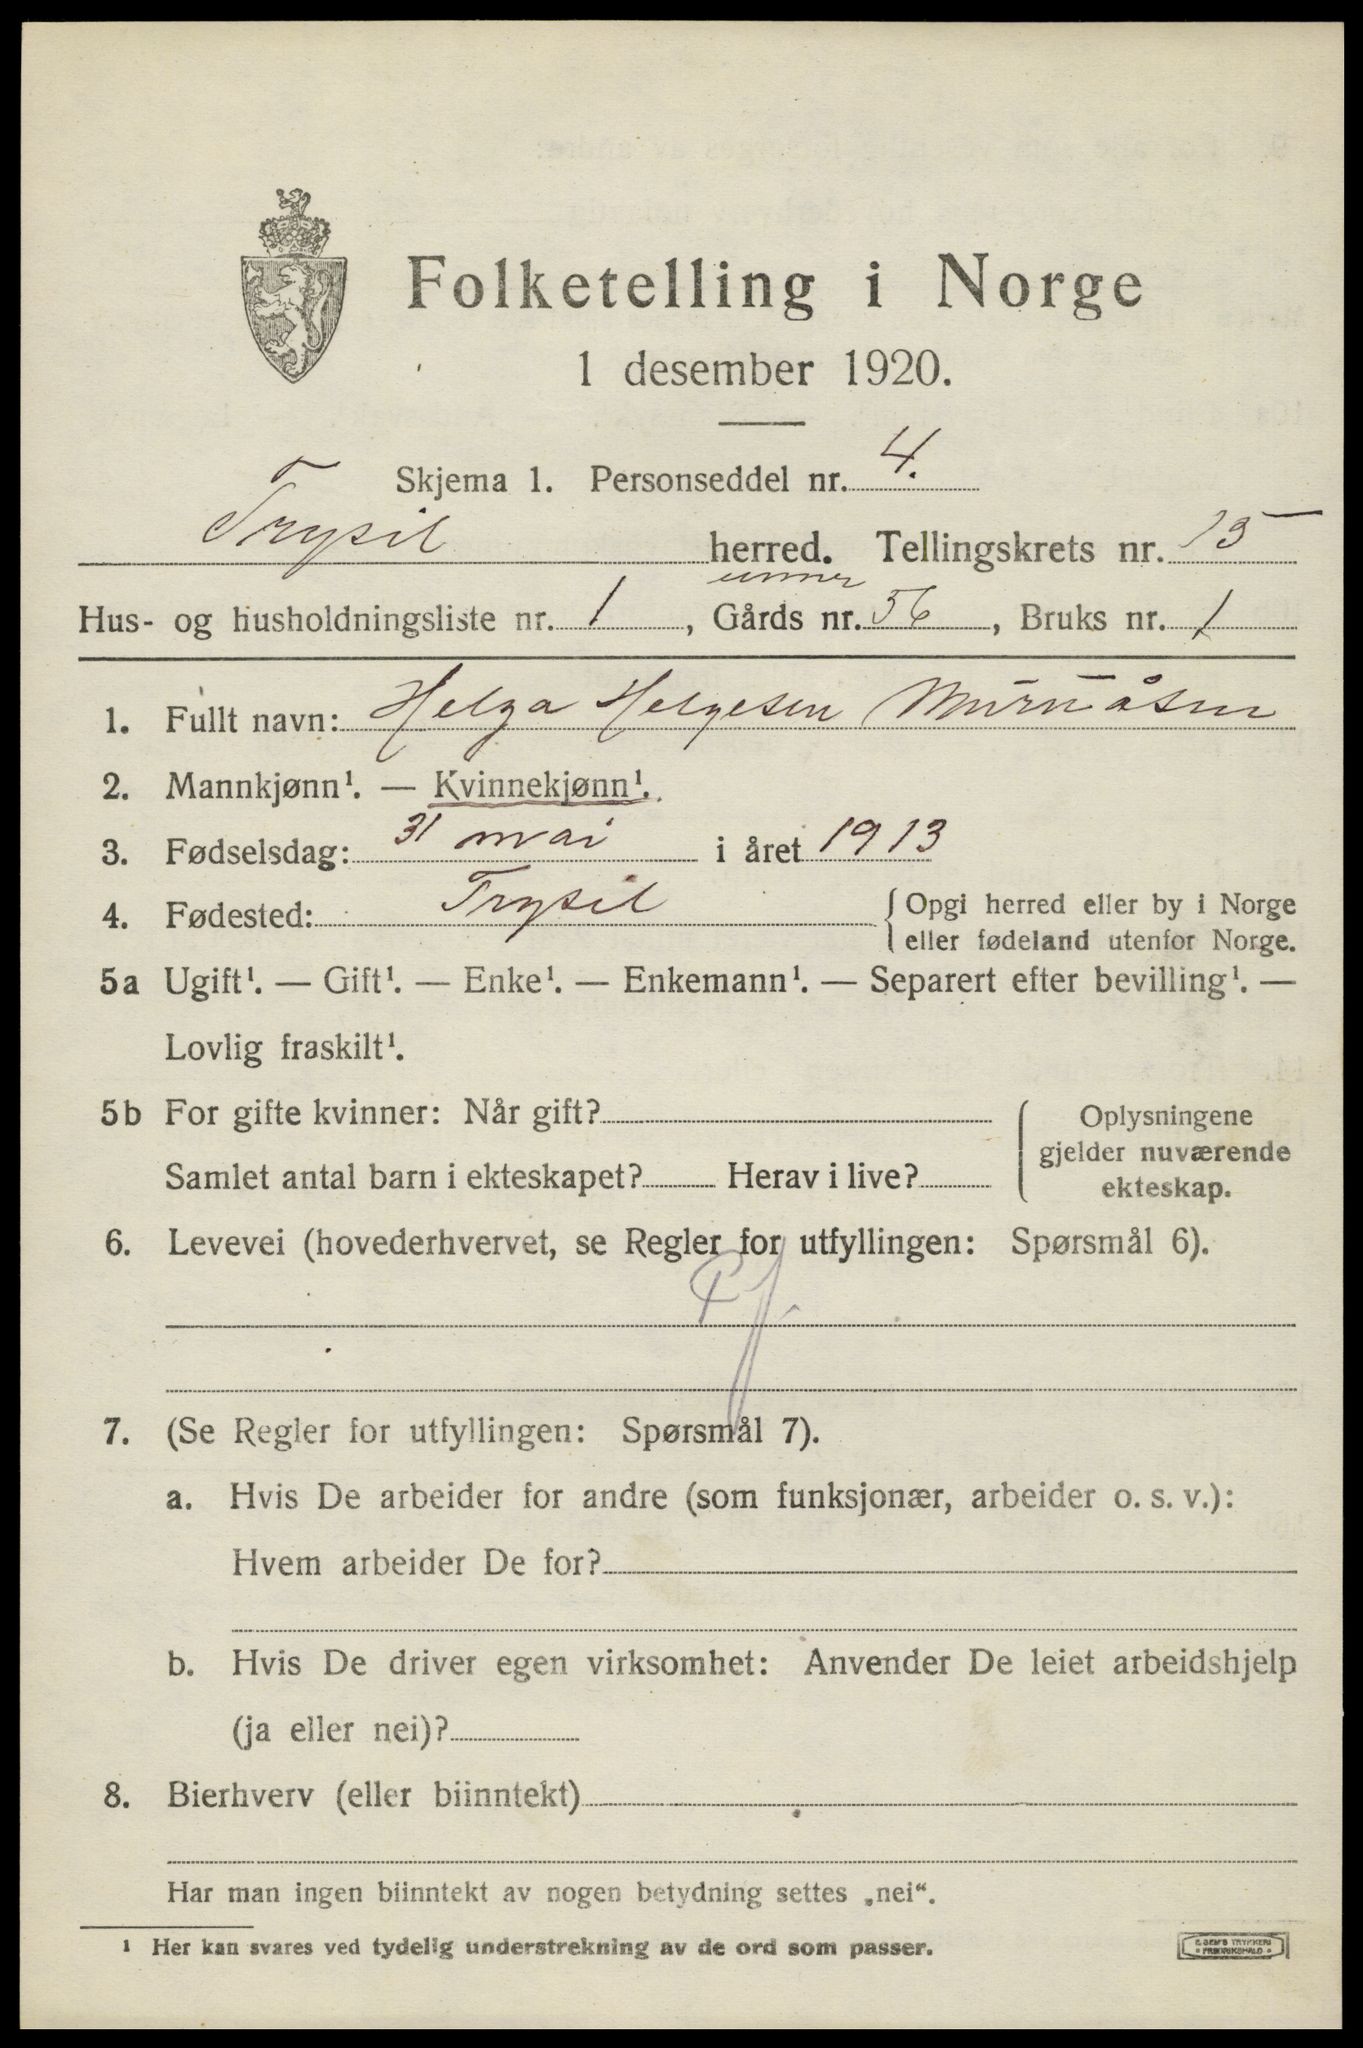 Folketelling i Norge
1 desember 1920.
Skjema 1. Personseddel nr. 4.
Trysil herred. Tellingskrets nr. 15
unner
Hus- og husholdningsliste nr. 1, Gårds nr. 56, Bruks nr. 1
1. Fullt navn: Helga Helgesen
2. Mannkjønn¹. — Kvinnekjønn¹.
3. Fødselsdag: 31 mai i året 1913
4. Fødested: Trysil { Opgi herred eller by i Norge
eller fødeland utenfor Norge.
5a Ugift¹. — Gift¹. — Enke¹. — Enkemann¹. — Separert efter bevilling¹. —
Lovlig fraskilt¹.
5b For gifte kvinner: Når gift?
Samlet antal barn i ekteskapet? Herav i live?
Oplysningene
gjelder nuværende
ekteskap.
6. Levevei (hovederhvervet, se Regler for utfyllingen: Spørsmål 6).
7. (Se Regler for utfyllingen: Spørsmål 7).
a. Hvis De arbeider for andre (som funksjonær, arbeider o. s. v.):
Hvem arbeider De for?
b. Hvis De driver egen virksomhet: Anvender De leiet arbeidshjelp
(ja eller nei)?
8. Bierhverv (eller biinntekt)
Har man ingen biinntekt av nogen betydning settes „nei“.
¹ Her kan svares ved tydelig understrekning av de ord som passer.
E. SEM'S TRYKKERI
FREDRIKSHALD